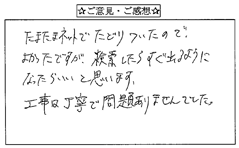 ☆ご意見・ご感想☆
たまたまネットでたどりついたので、
よかったですが、検索したらすぐ出るように
なったらいいと思います。
工事は丁寧で問題ありませんでした。